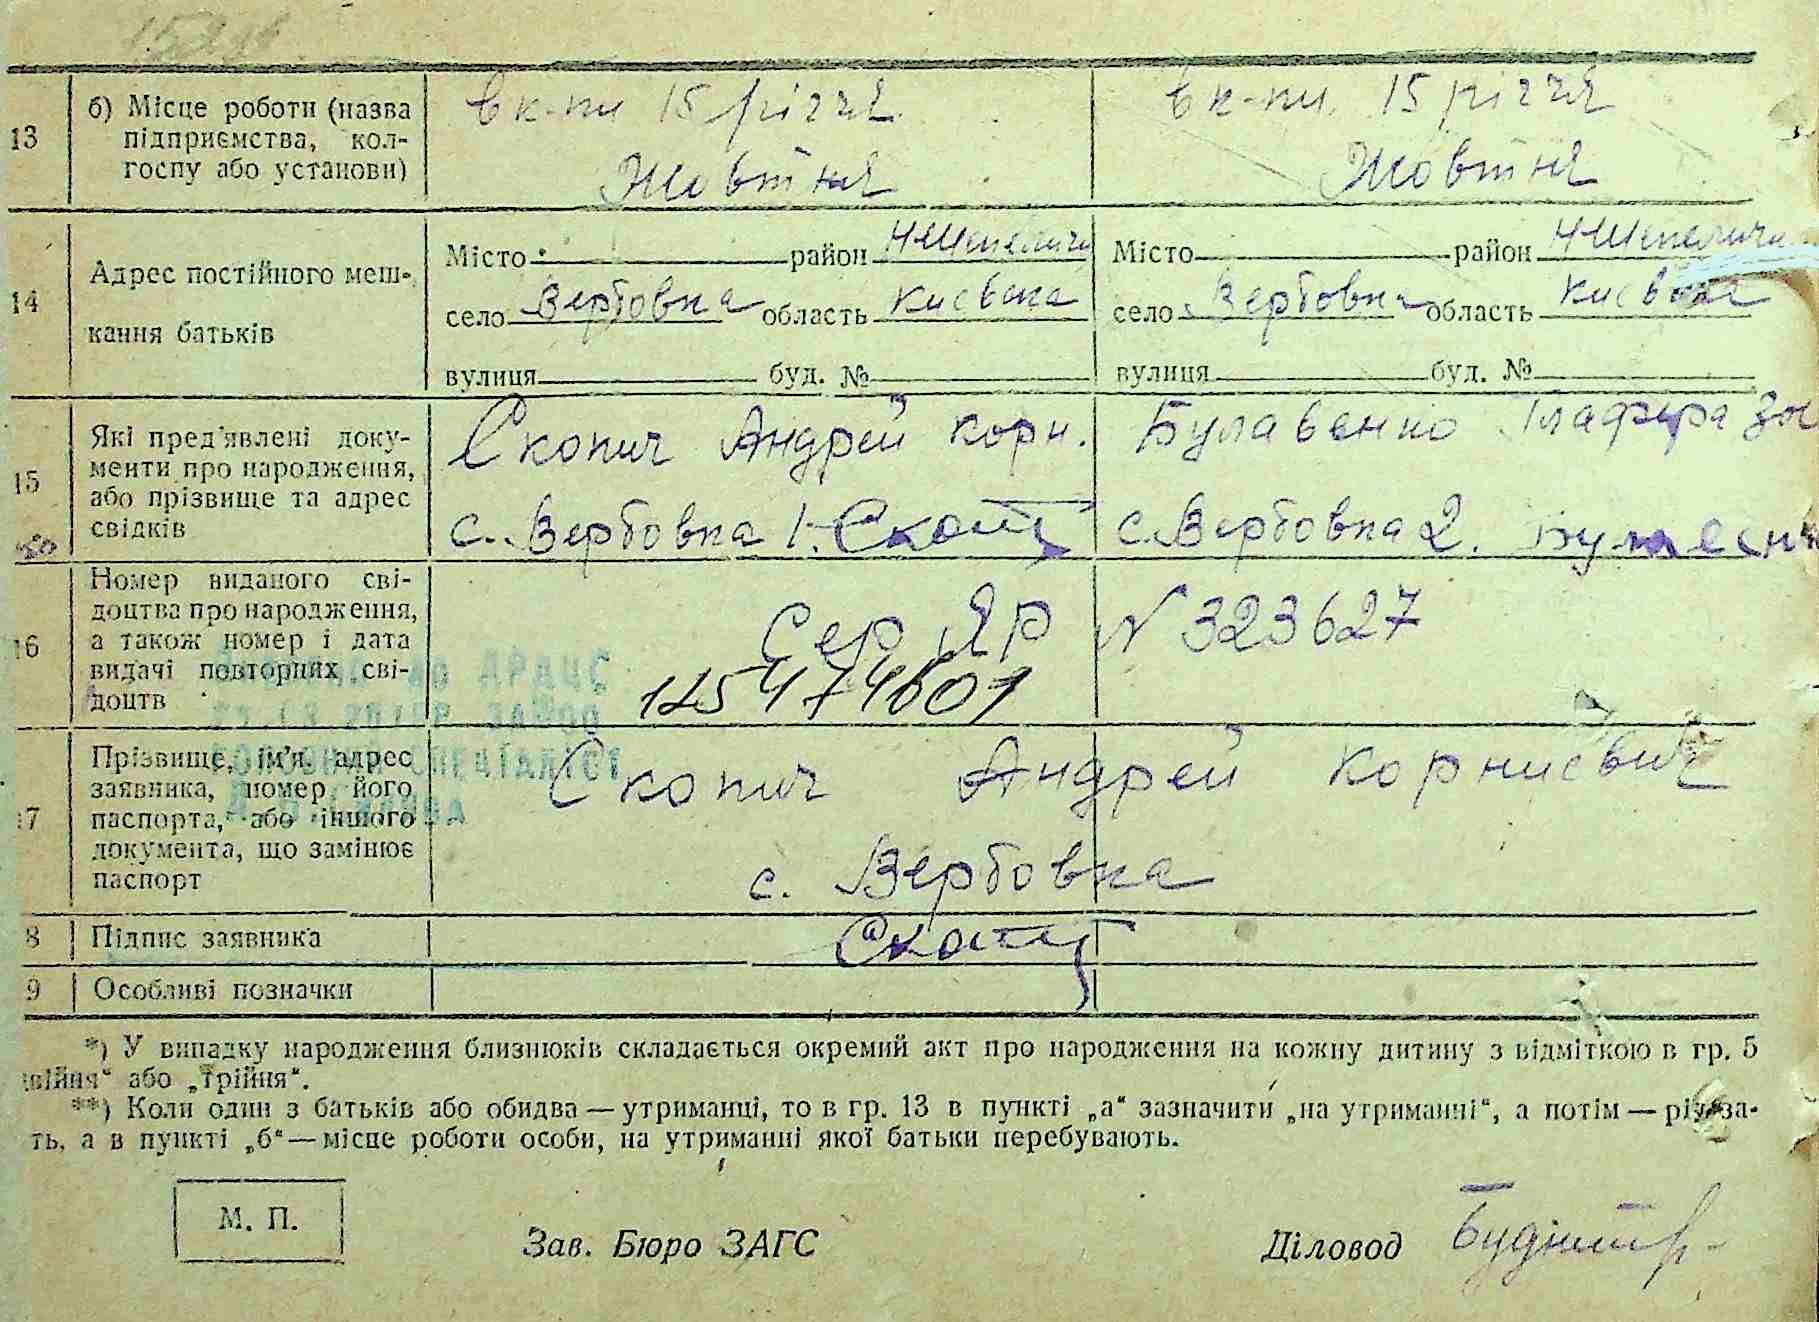 13
б) Місце роботи (назва
підприємства, кол-
госпу або установи)
в к-пи 15 річчя
Жовтня
в к-пи. 15 річчя
Жовтня
14
Адрес постійного меш-
кання батьків
Місто район Н-Шепеличи
село Вербовка область Киевска
вулиця буд. №
Місто район Н-Шепеличи
село Вербовка область Киевска
вулиця буд. №
15
Які пред'явлені доку-
менти про народження,
або прізвище та адрес
свідків
Скопич Андрей Корн.
с. Вербовка 1. Скопич
Булавенко Глафира
с. Вербовка 2.
16
Номер виданого сві-
доцтва про народження,
а також номер і дата
видачі повторних сві-
доцтв
Сер ЯР N 323627
17
Прізвище, ім'я, адрес
заявника, номер його
паспорта, або іншого
документа, що замінює
паспорт
Скопич Андрей Корниевич
с. Вербовка
8
Підпис заявника
Скопич
9
Особливі позначки
*) У випадку народження близнюків складається окремий акт про народження на кожну дитину з відміткою в гр. 5
двійня" або „трійня".
**) Коли один з батьків або обидва — утриманці, то в гр. 13 в пункті „а" зазначити „на утриманні", а потім —
ть, а в пункті „б" — місце роботи особи, на утриманні якої батьки перебувають.
М. П.
Зав. Бюро ЗАГС
Діловод